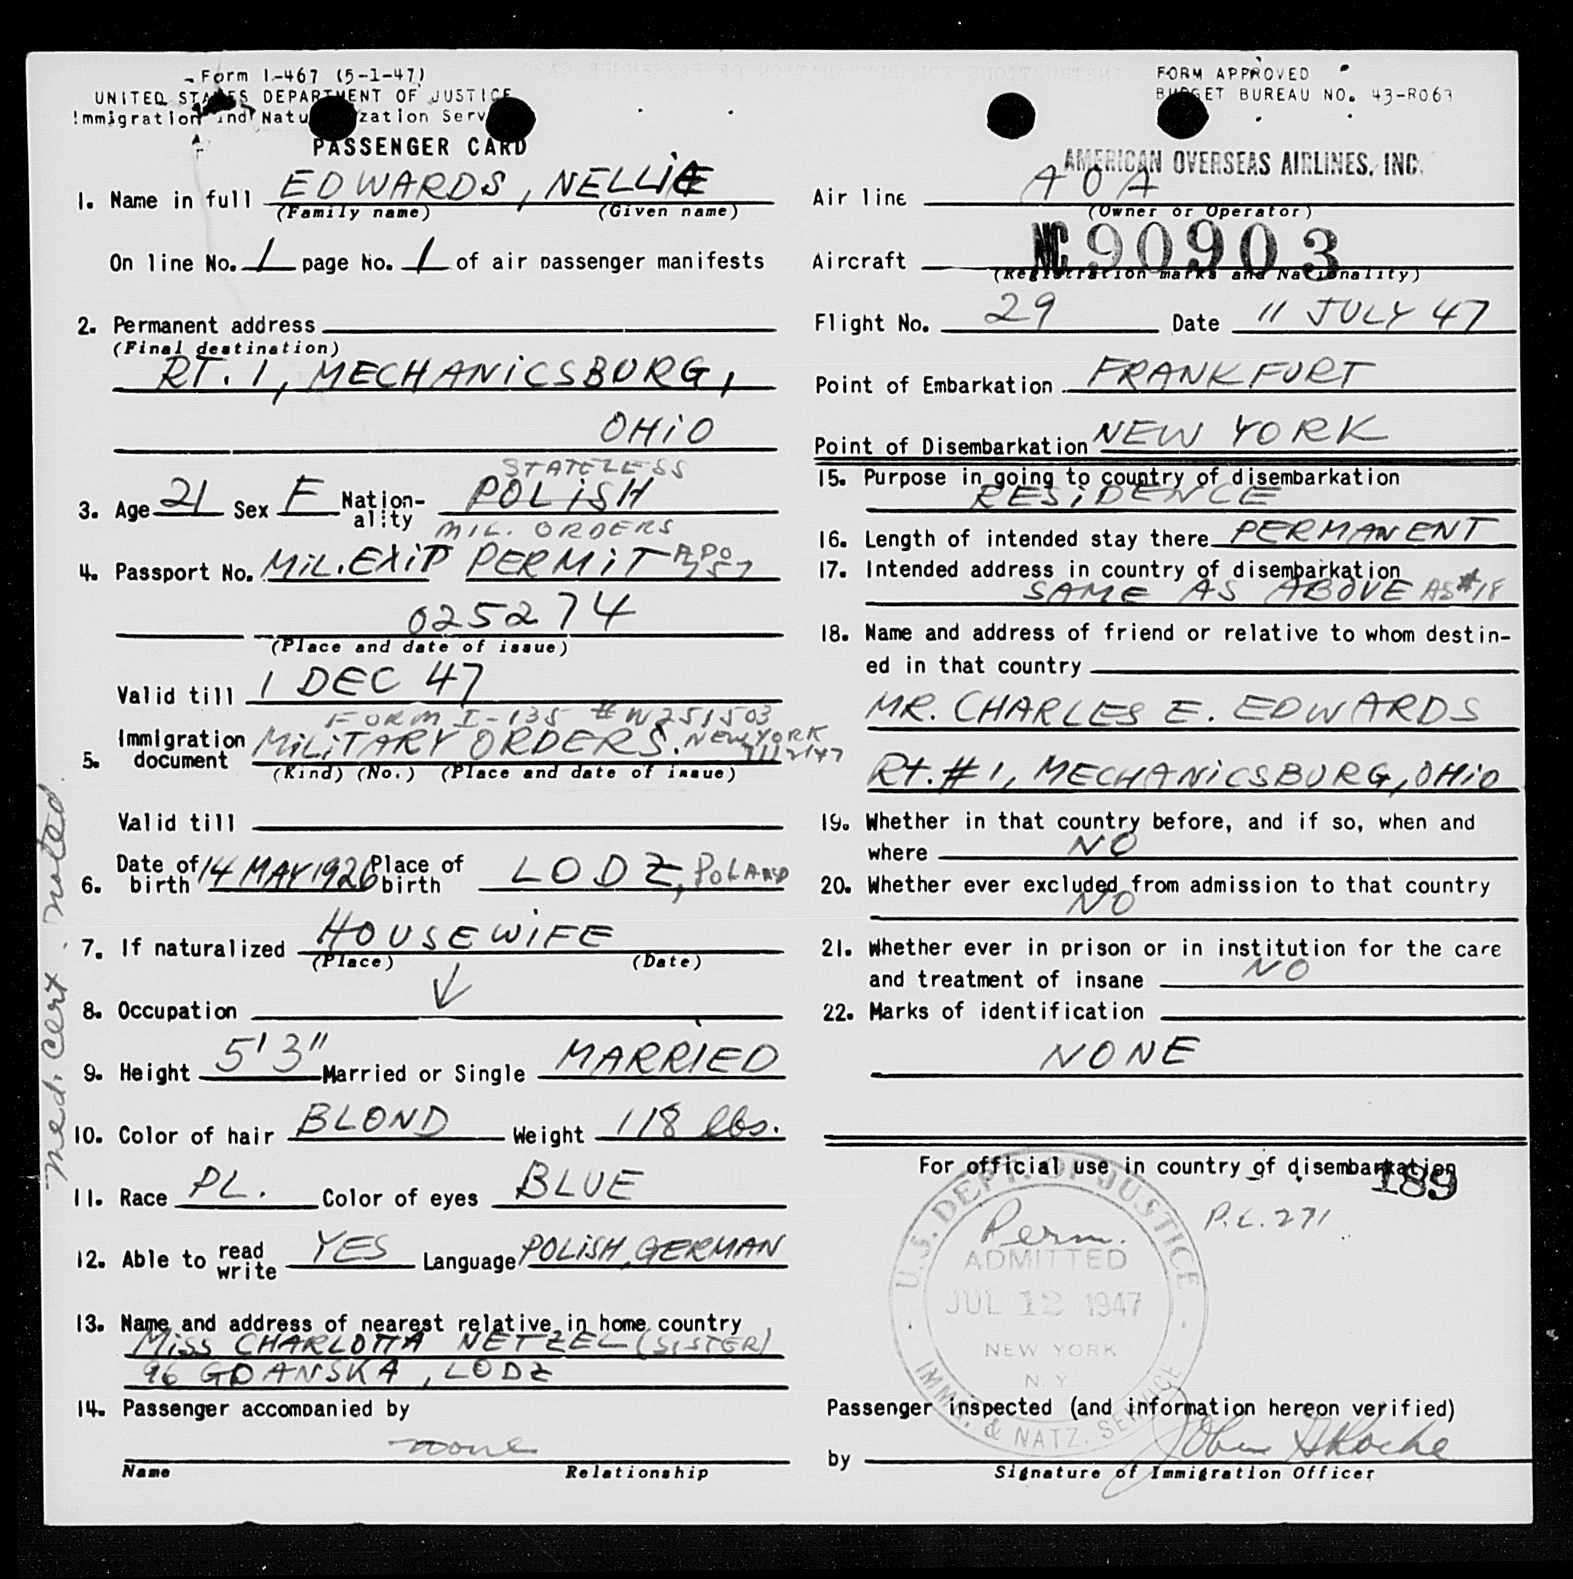 Form I-467 (5-1-47)
UNITED STATES DEPARTMENT OF JUSTICE
Immigration and Naturalization Service
PASSENGER CARD
1. Name in full EDWARDS, NELLIE
(Family name) (Given name)
On line No. 1 page No. 1 of air passenger manifests
2. Permanent address
(Final destination)
RT. 1, MECHANICSBURG,
OHIO
STATELESS
3. Age 21 Sex F Nation-ality POLISH
MIL. ORDERS
4. Passport No. MIL. EXIT PERMIT APO 757
025274
(Place and date of issue)
Valid till 1 DEC 47
FORM I-135 #N251503
5. Immigration document MILITARY ORDERS. NEW YORK 7/12/47
(Kind) (No.) (Place and date of issue)
Valid till
6. Date of birth 14 MAY 1926 Place of birth LODZ, POLAND
7. If naturalized HOUSEWIFE
(Place) (Date)
8. Occupation
9. Height 5'3" Married or Single MARRIED
10. Color of hair BLOND Weight 118 lbs.
11. Race PL. Color of eyes BLUE
12. Able to read write YES Language POLISH, GERMAN
13. Name and address of nearest relative in home country
MISS CHARLOTTA NETZEL (SISTER)
96 GDANSKA, LODZ
14. Passenger accompanied by
none
Name Relationship
Med. Cert. noted.
FORM APPROVED
BUDGET BUREAU NO. 43-R063
AMERICAN OVERSEAS AIRLINES, INC.
Air line AOA
(Owner or Operator)
Aircraft NC 90903
(Registration marks and Nationality)
Flight No. 29 Date 11 JULY 47
Point of Embarkation FRANKFURT
Point of Disembarkation NEW YORK
15. Purpose in going to country of disembarkation
RESIDENCE
16. Length of intended stay there PERMANENT
17. Intended address in country of disembarkation
SAME AS ABOVE AS #18
18. Name and address of friend or relative to whom destin-
ed in that country
MR. CHARLES E. EDWARDS
Rt. #1, MECHANICSBURG, OHIO
19. Whether in that country before, and if so, when and
where NO
20. Whether ever excluded from admission to that country
NO
21. Whether ever in prison or in institution for the care
and treatment of insane NO
22. Marks of identification
NONE
For official use in country of disembarkation
189
P.L. 271
U.S. DEPT. OF JUSTICE
Perm.
ADMITTED
JUL 12 1947
NEW YORK
N.Y.
IMMG. & NATZ. SERVICE
Passenger inspected (and information hereon verified)
by
Signature of Immigration Officer